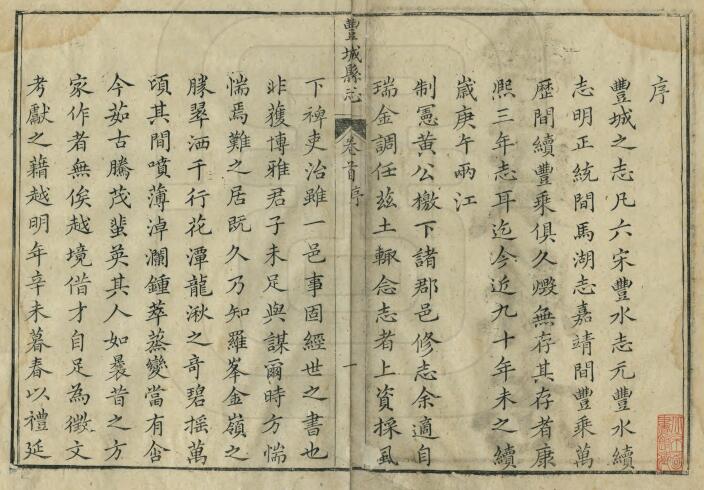 序
豐城之志凡六宋豐水志元豐水續
志明正統間馬湖志嘉靖間豐乘萬
歷間續豐乘俱久燬無存其存者康
熙三年志耳迄今近九十年未之續
歲庚午兩江
制憲黃公檄下諸郡邑修志余適自
瑞金調任茲土輙念志者上資採風
豐城縣志
卷首序
一
下裨吏治雖一邑事固經世之書也
非獲博雅君子未足與謀爾時方惴
惴焉難之居旣久乃知羅峯金嶺之
勝翠洒千行花潭龍湫之奇碧搖萬
頃其間噴薄淖瀾鍾萃蒸變當有含
今茹古騰茂蜚英其人如曩昔之方
家作者無俟越境借才自足為徵文
考獻之藉越明年辛未暮春以禮延